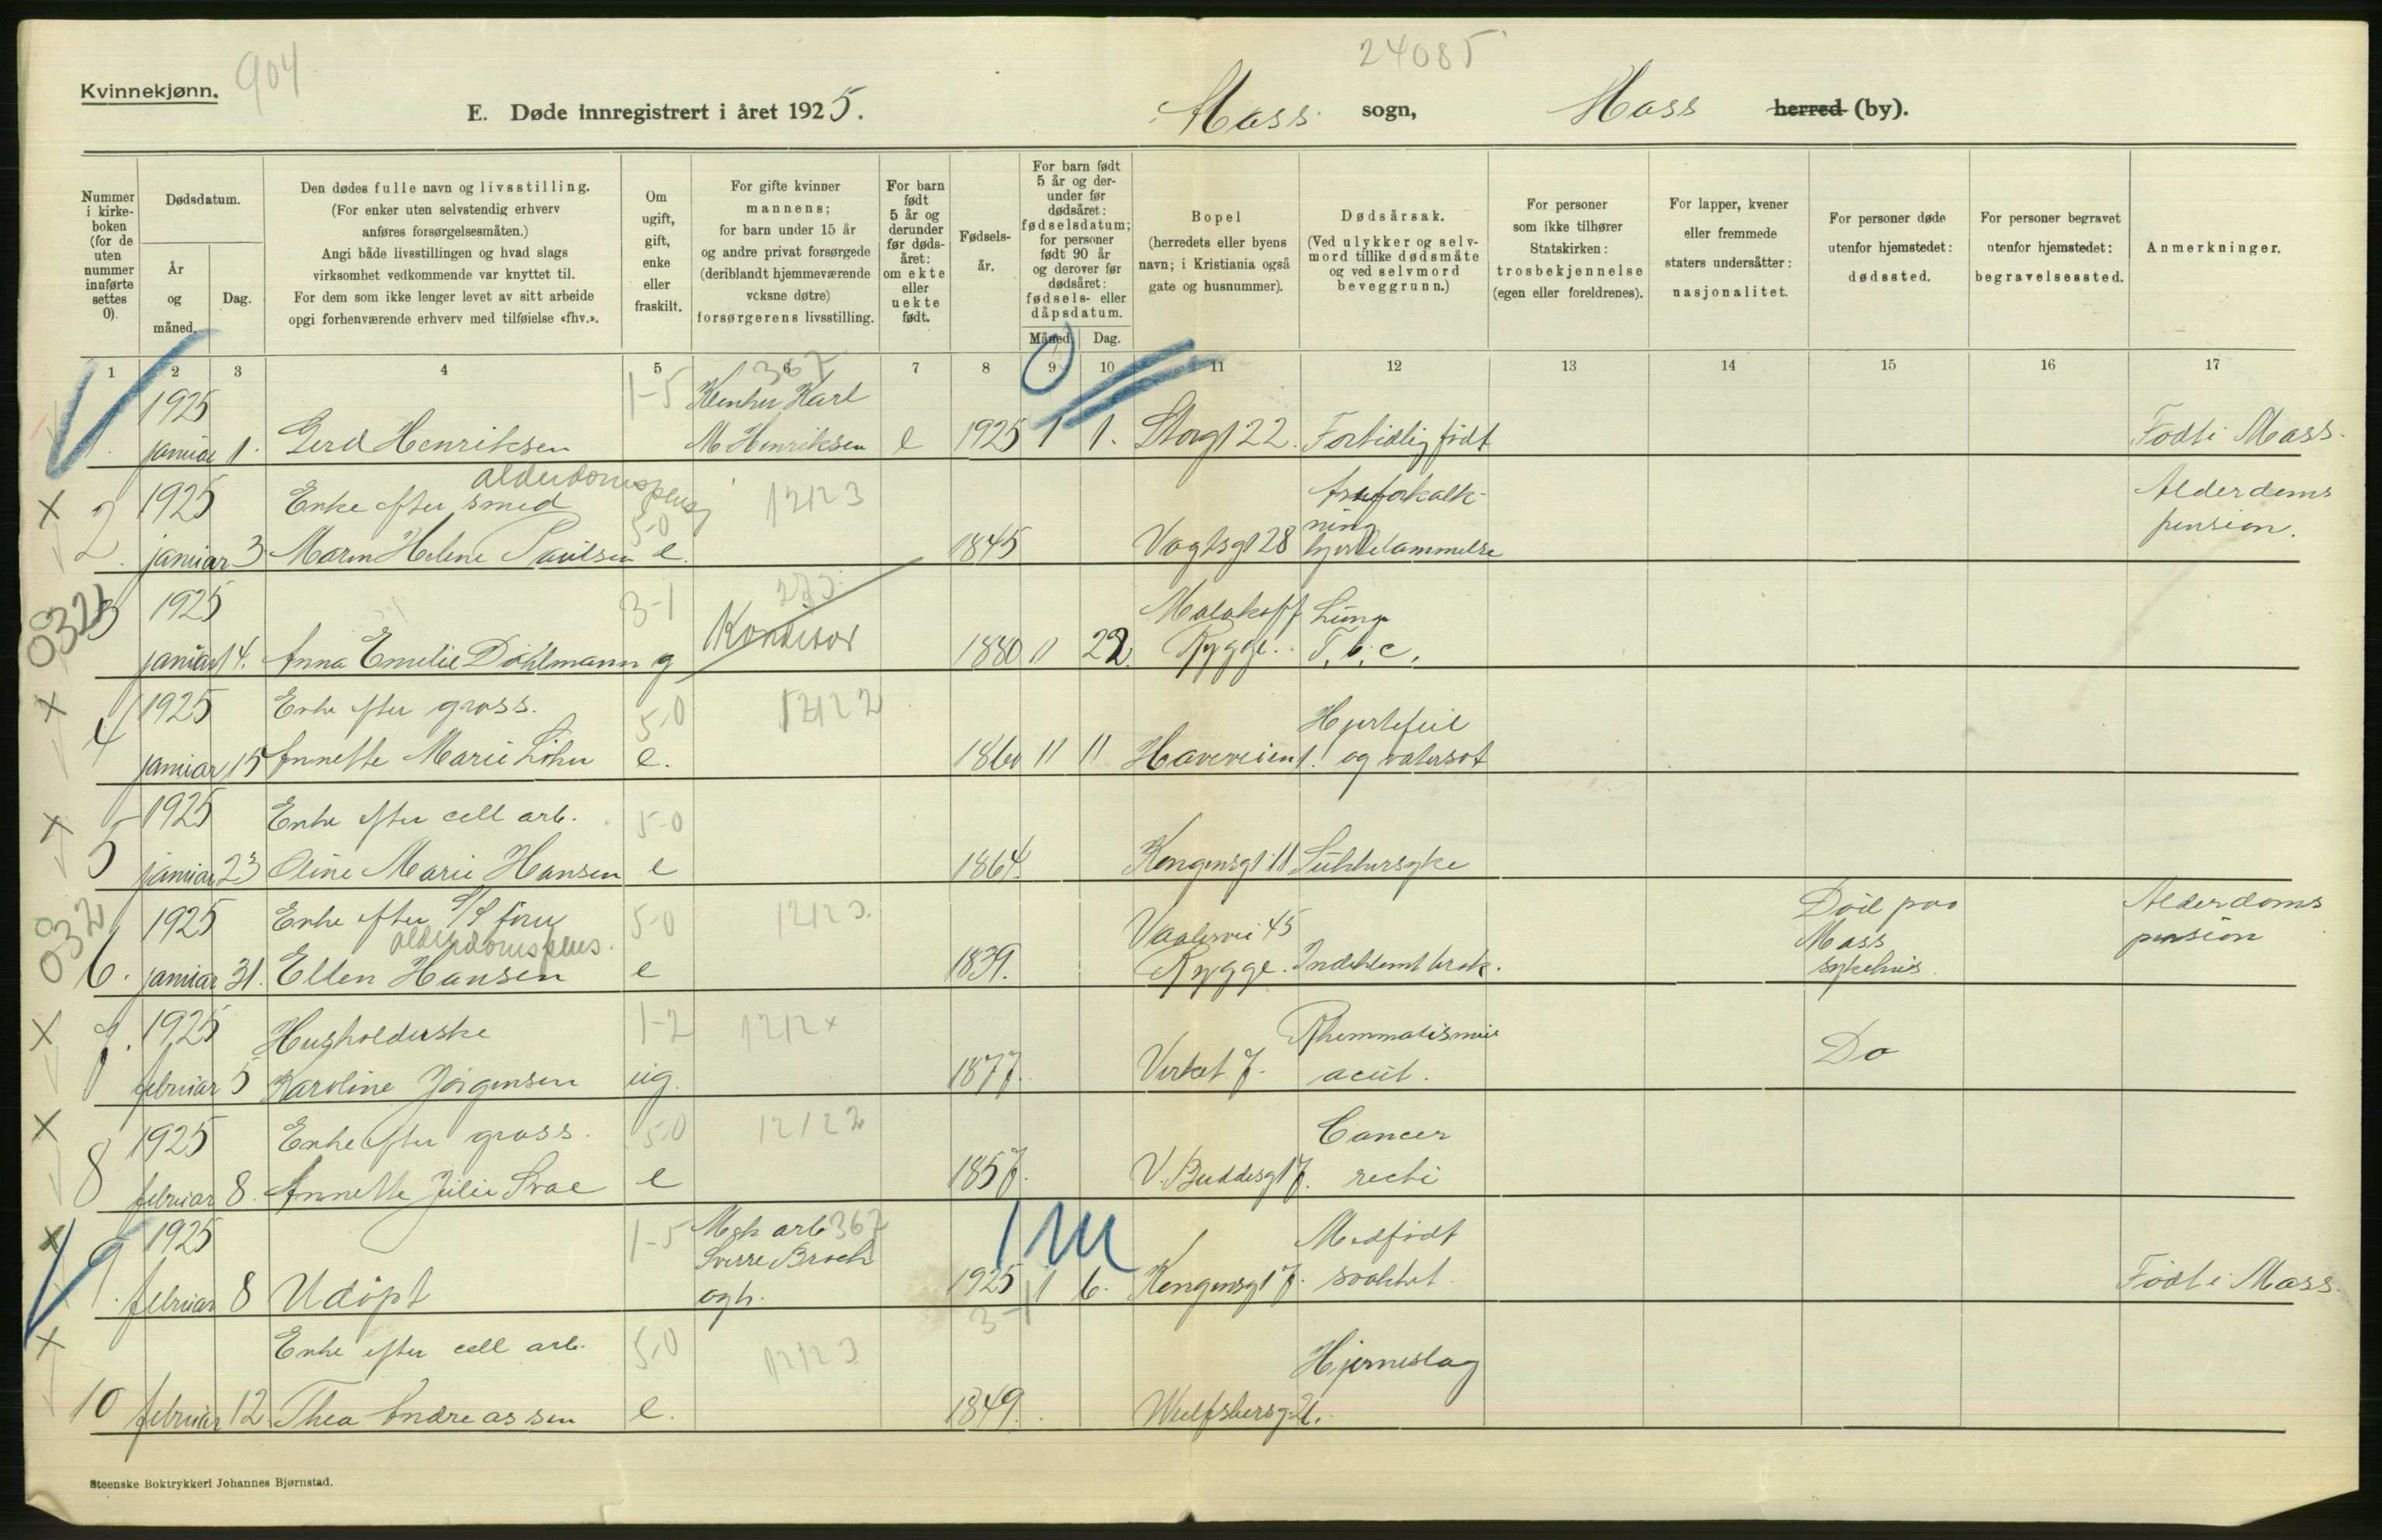 Kvinnekjønn.
904
24085
E. Døde innregistrert i året 1925.
Moss sogn,
Moss herred (by).
Nummer i kirkeboken (for de uten nummer innførte settes 0).
Dødsdatum.
År og måned.
Dag.
Den dødes fulle navn og livsstilling.
(For enker uten selvstendig erhverv
anføres forsørgelsesmåten.)
Angi både livsstillingen og hvad slags
virksomhet vedkommende var knyttet til.
For dem som ikke lenger levet av sitt arbeide
opgi forhenværende erhverv med tilføielse «fhv.».
Om
ugift,
gift,
enke
eller
fraskilt.
For gifte kvinner
mannens;
for barn under 15 år
og andre privat forsørgede
(deriblandt hjemmeværende
vcksne døtre)
forsørgerens livsstilling.
For barn
født
5 år og
derunder
før døds-
året:
om ekte
eller
uekte
født.
Fødsels-
år.
For barn født
5 år og der-
under før
dødsåret:
fødselsdatum;
for personer
født 90 år
og derover før
dødsåret:
fødsels- eller
dåpsdatum.
Måned
Dag.
Bopel
(herredets eller byens
navn; i Kristiania også
gate og husnummer).
Dødsårsak.
(Ved ulykker og selv-
mord tillike dødsmåte
og ved selvmord
beveggrunn.)
For personer
som ikke tilhører
Statskirken:
trosbekjennelse
(egen eller foreldrenes).
For lapper, kvener
eller fremmede
staters undersåtter:
nasjonalitet.
For personer døde
utenfor hjemstedet:
dødssted.
For personer begravet
utenfor hjemstedet:
begravelsessted.
Anmerkninger.
1 2 3 4 5 6 7 8 9 10 11 12 13 14 15 16 17
1925 1-5 367 Karl
1. januar 1. Gerd Henriksen M Henriksen e 1925 1 1. Storgt 22. Fortidlig født Født i Moss.
alderdomspens
2 1925 Enke efter smed 5-0 12123 Alderdoms
januar 3 Maren Helene Paulsen e. 1845 Vogtsgt 28 hjertelammelse pension.
0323
3 1925 3-1 Konditor Malakoff Lunge
januar 14. Anna Emilie Dahlmann g 1880 11 22. Rygge. T. b. c.
4 1925 Enke efter gross. 5-0 12122 Hjertefeil
januar 15 Annette Marie Løhn e. 1860 11 11 Haveveien 1. og vatersot
1925 Enke efter cell arb. 5-0
5 januar 23 Oline Marie Hansen e 1864. Kongensgt 11 Sukkersyke
032
1925 Enke efter S/S fører 5-0 1212 Vaalervei 45 Død paa Alderdoms
alderdomspens.
6. januar 31. Ellen Hansen e 1839. Rygge. Indeklemt brok. Moss sykehus. pension
7. 1925 Husholderske 1-2 1212x Rheumatismus Do
februar 5 Karoline Jørgensen ug. 1877. Verket 7. acut.
1925 Enke efter gross. 5-0 12122 Cancer
8 februar 8. Annette Julie Svae e 1857. V. Buddesgt 7. recti
1925 1-5 Mek arb 367 Medfødt
Sverre Broch
9. februar 8 Udøpt ogh. 1925 1 6. Kongensgt 7. svakhet. Født i Moss.
Enke efter cell arb. 5-0 Hjerneslag
10 februar 12. Thea Andreassen e. 1849. Wulfsbergg. 21.
Steenske Boktrykkeri Johannes Bjørnstad.